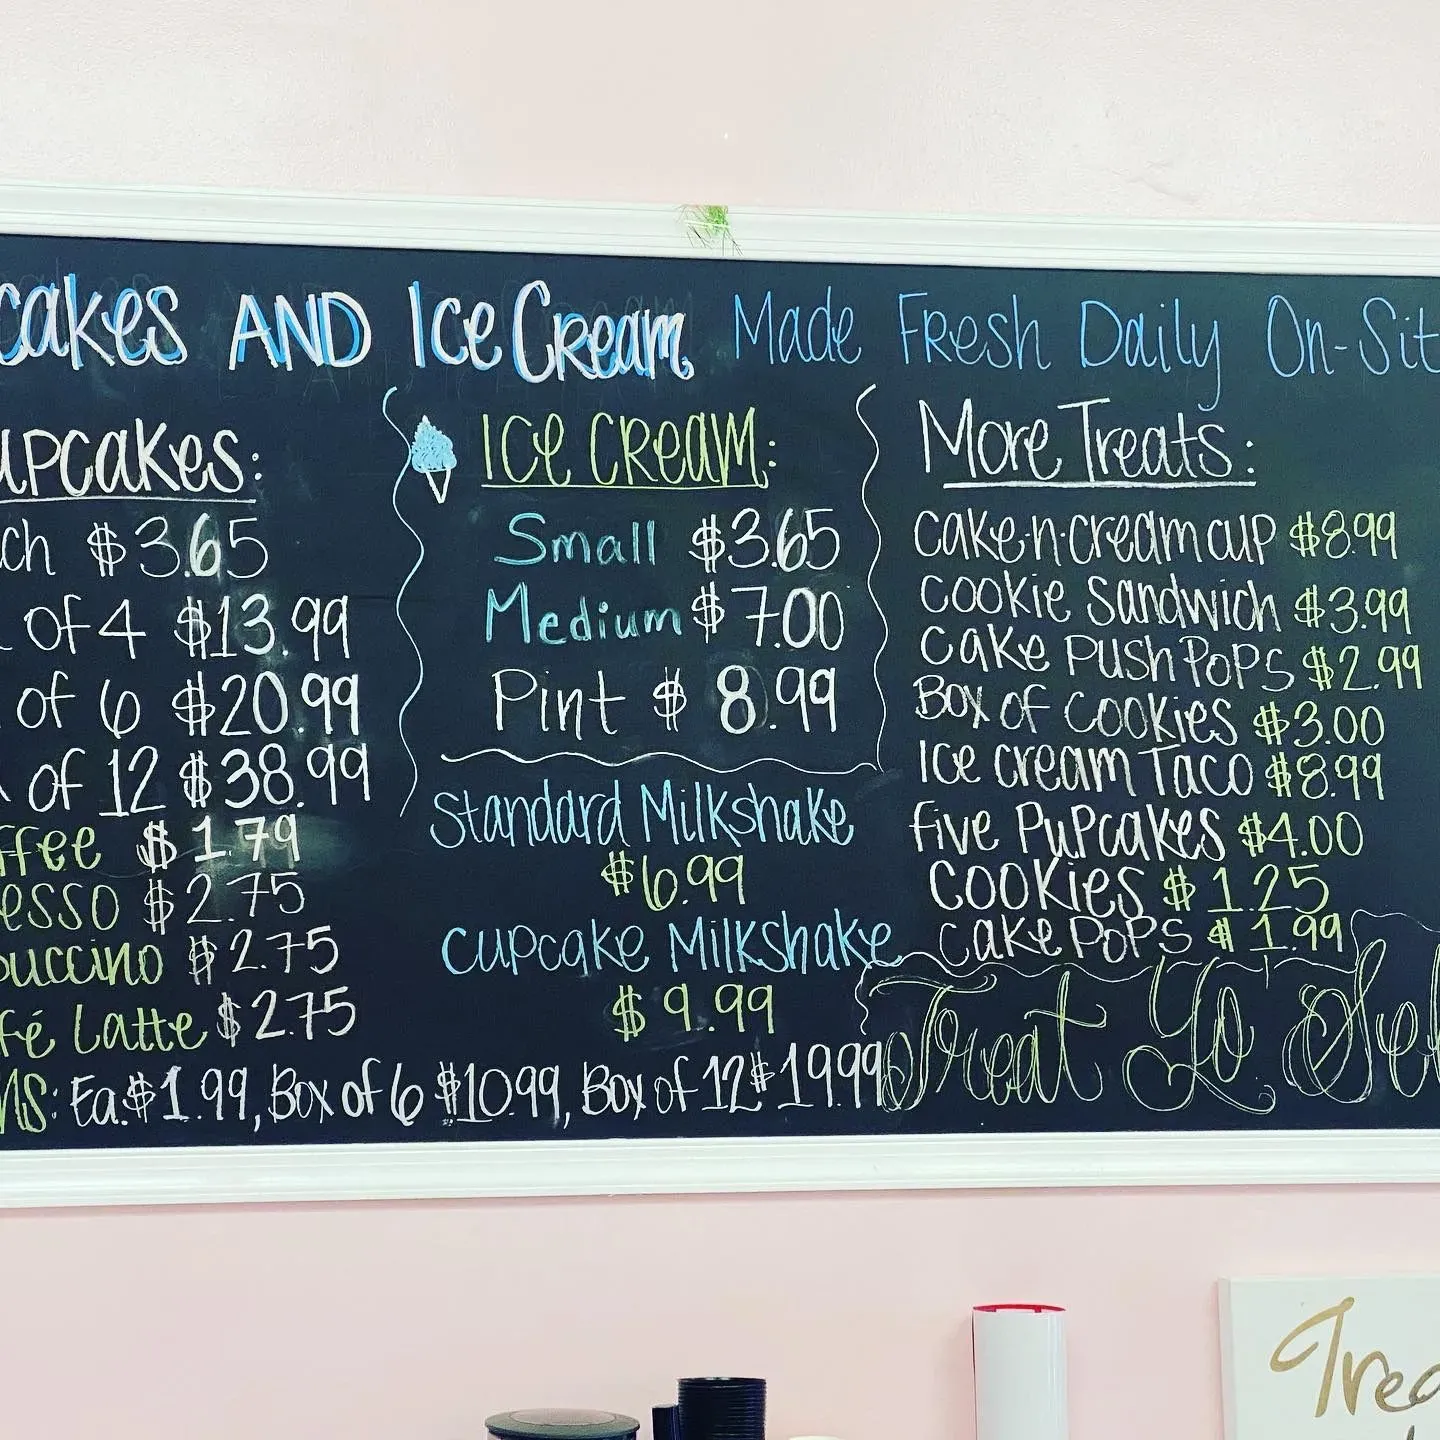 cakes AND Ice Cream Made Fresh Daily On-Sit
upcakes:
ch $3.65
of 4 $13.99
of 6 $20.99
of 12 $38.99
ffee $1.79
esso $2.75
puccino $2.75
fé Latte $2.75
NS: Ea. $1.99, Box of 6 $10.99, Box of 12 $19.99
Ice Cream:
Small $3.65
Medium $7.00
Pint $8.99
Standard Milkshake
$6.99
Cupcake Milkshake
$9.99
More Treats:
cake-n-cream cup $8.99
cookie sandwich $3.99
cake push pops $2.99
Box of cookies $3.00
Ice cream Taco $8.99
five Pupcakes $4.00
Cookies $1.25
cake pops $1.99
Treat Yo Sel
Trea